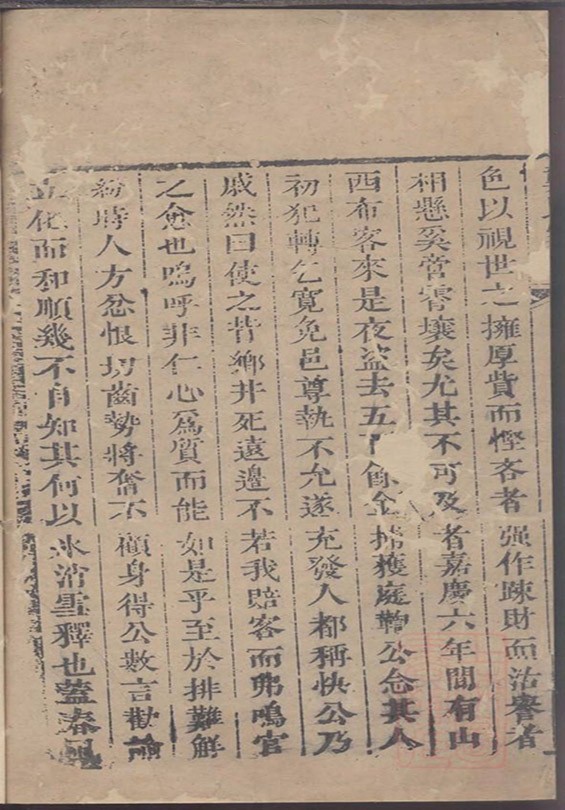 色以視世之擁厚貲而慳吝者强作踈財而沽譽者
相懸奚啻霄壤矣尤其不可及者嘉慶六年間有山
西布客來是夜盜去五十餘金捕獲庭鞫公念其人
初犯轉乞寬免邑尊執不允遂充發人都稱快公乃
戚然曰使之背鄉井死遠邊不若我賠客而弗鳴官
之愈也嗚呼非仁心爲質而能如是乎至於排難解
紛時人方忿恨切齒勢將奮不顧身得公數言勸諭
立化而和順幾不自知其何以氷消雪釋也蓋春風